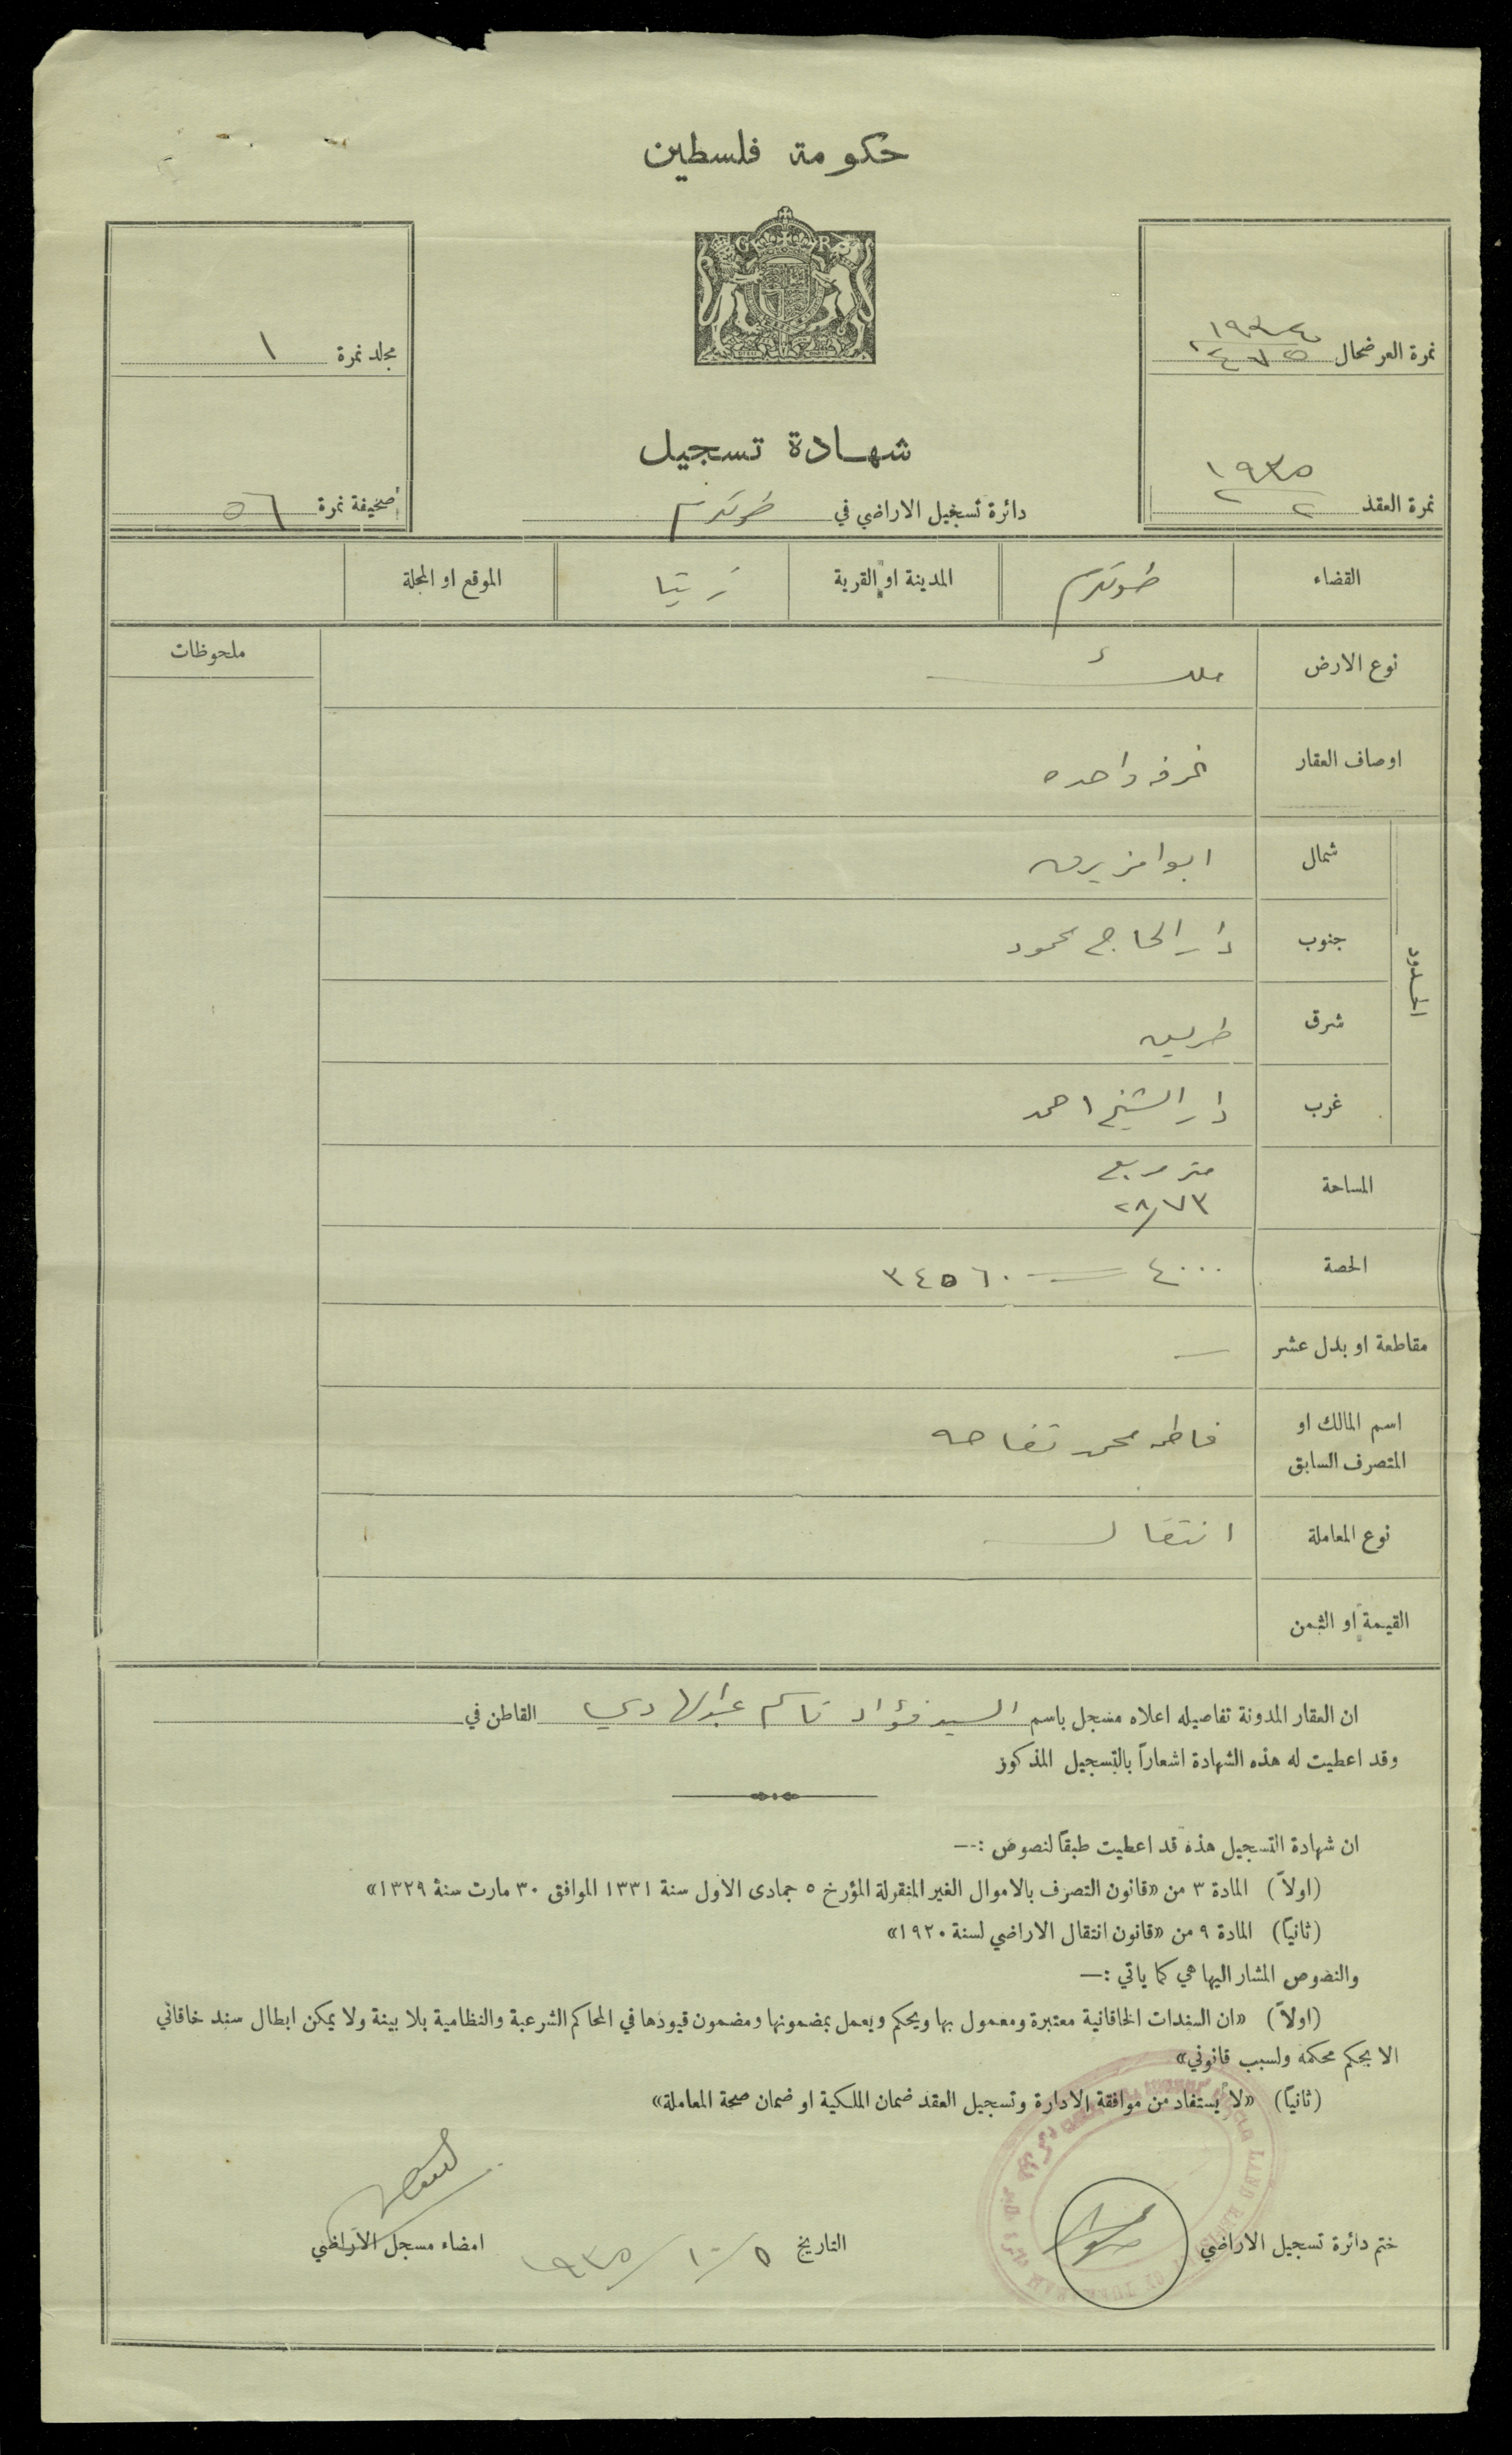 حكومة فلسطين
G R
نمرة العرضحال ١٩٣٤ / ١٤٧٥
مجلد نمرة ١
شهادة تسجيل
نمرة العقد ١٩٣٥ / ٢
دائرة تسجيل الاراضي في طولكرم
صحيفة نمرة ٥٦
القضاء طولكرم المدينة او القرية زيتا الموقع او المحلة
نوع الارض ملك
ملحوظات
اوصاف العقار غرفه واحده
الحدود
شمال ابو
جنوب دار الحاج محمود
شرق طريق
غرب دار الشيخ احمد
المساحة متر مربع
٢٨/٧٣
الحصة ٤٠٠٠ ٣٤٥٦٠
مقاطعة او بدل عشر —
اسم المالك او المتصرف السابق فاطمه محمد تفاحه
نوع المعاملة انتقال
القيمة او الثمن
ان العقار المدونة تفاصيله اعلاه مسجل باسم السيد فؤاد قاسم عبد الهادي القاطن في
وقد اعطيت له هذه الشهادة اشعاراً بالتسجيل المذكور
ان شهادة التسجيل هذه قد اعطيت طبقاً لنصوص :—
(اولاً) المادة ٣ من «قانون التصرف بالاموال الغير المنقولة المؤرخ ٥ جمادى الاول سنة ١٣٣١ الموافق ٣٠ مارت سنة ١٣٢٩»
(ثانياً) المادة ٩ من «قانون انتقال الاراضي لسنة ١٩٢٠»
والنصوص المشار اليها هي كما ياتي :—
(اولاً) «ان السندات الخاقانية معتبرة ومعمول بها ويحكم ويعمل بمضمونها ومضمون قيودها في المحاكم الشرعية والنظامية بلا بينة ولا يمكن ابطال سند خاقاني
الا بحكم محكمة ولسبب قانوني»
(ثانياً) «لا يستفاد من موافقة الادارة وتسجيل العقد ضمان الملكية او ضمان صحة المعاملة»
ختم دائرة تسجيل الاراضي
التاريخ ٥/١٠/١٩٣٥
امضاء مسجل الاراضي